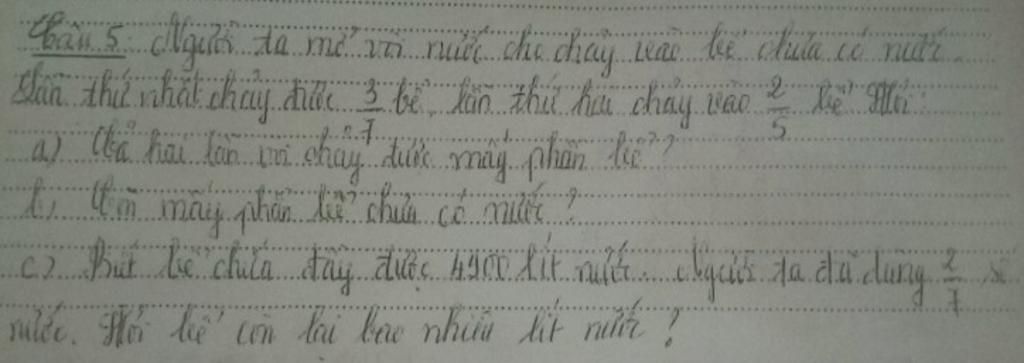 Câu 5: Người ta mở vòi nước cho chảy vào bể chưa có nước.
Lần thứ nhất chảy được 3/7 bể, lần thứ hai chảy vào 2/5 bể. Hỏi:
a) Cả hai lần vòi chảy được mấy phần bể?
b, Còn mấy phần bể chưa có nước?
c) Biết bể chứa đầy được 4900 lít nước. Người ta đã dùng 2/7 số
nước. Hỏi bể còn lại bao nhiêu lít nước?